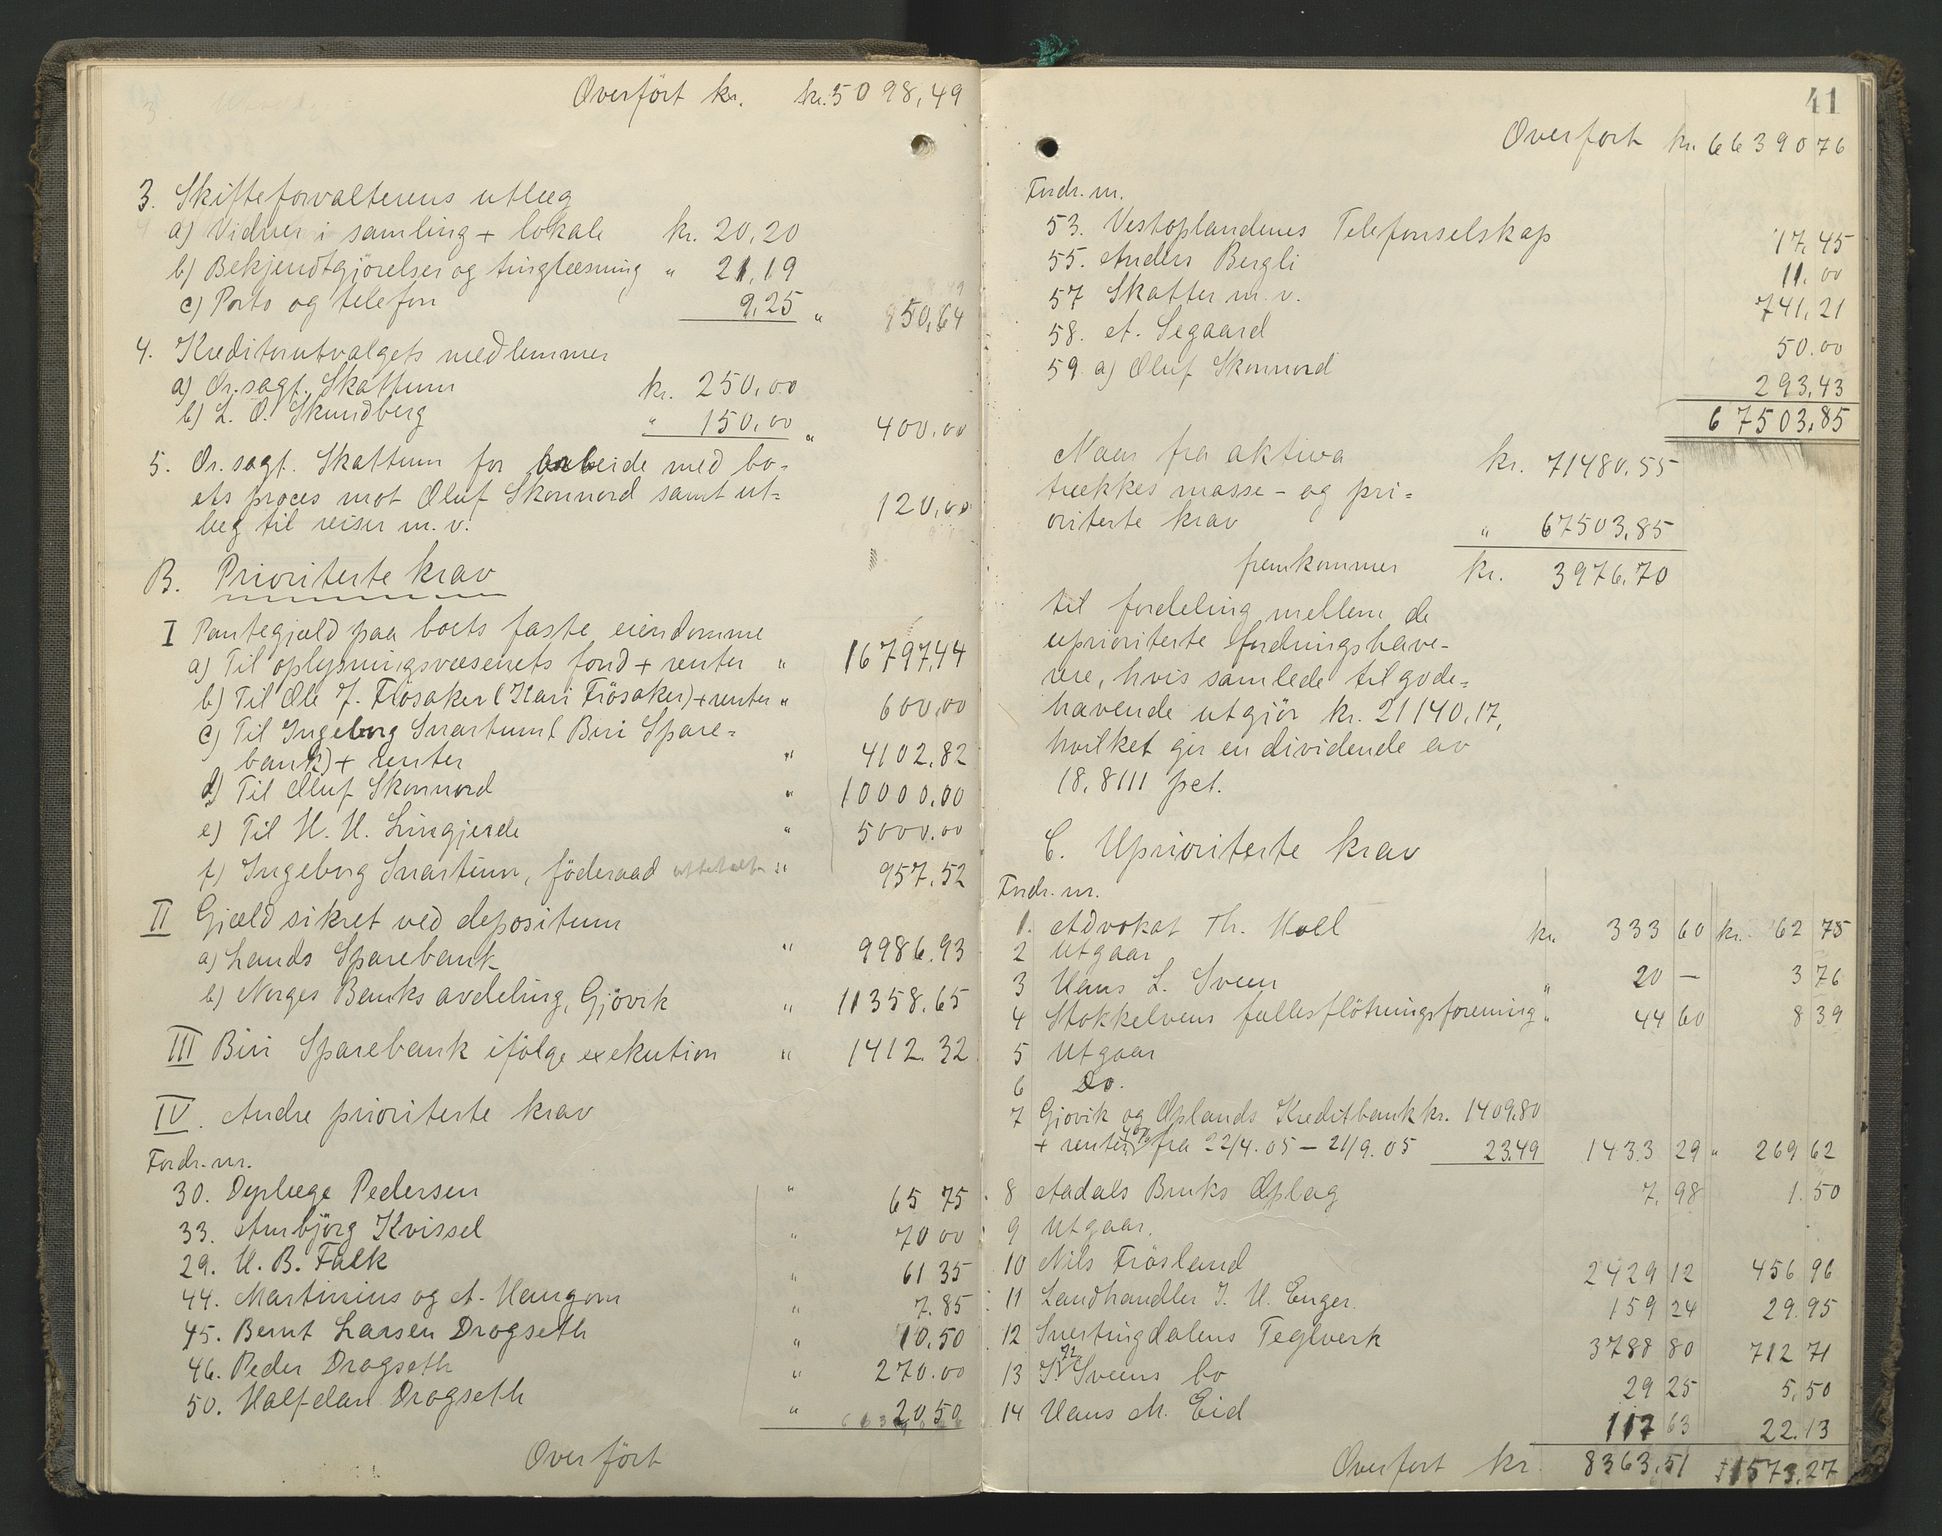 Overført kr. kr. 5098,49
3. Skifteforvalterens utlæg
a) Vidner i samling + lokale kr. 20,20
b) Bekjendtgjørelser og tinglæsning " 21,19
c) Porto og telefon 9,25 " 50,64
4. Kreditorutvalgets medlemmer
a) Or.sagf. Skattum kr. 250,00
b) L. O. Skundberg " 150,00 " 400,00
5. Or.sagf. Skattum for arbeide med bo-
ets proces mot Oluf Skonnord samt ut-
læg til reiser m. v. 120,00
B. Prioriterte krav
I Pantegjæld paa boets faste eiendomme
a) Til oplysningsvæsenets fond + renter " 16797,44
b) Til Ole J. Frøsaker (Kari Frøsaker) + renter " 600,00
c) Til Ingeborg Snartum (Biri Spare=
bank) + renter " 4102,82
d) Til Oluf Skonnord " 10000,00
e) Til H. H. Lingjerde " 5000,00
f) Ingeborg Snartum, føderaad " 957,52
II Gjæld sikret ved depositum
a) Lands Sparebank " 9986,93
b) Norges Banks avdeling, Gjøvik " 11358,65
III Biri Sparebank ifølge exekution " 1412,32
IV. Andre prioriterte krav
Fordr. nr.
30. Dyrlæge Pedersen " 65 75
33. Arnbjørg Kvissel " 70 00
29. H. B. Falk " 61 35
44. Martinius og A. Haugom " 7.85
45. Bernt Larsen Dragseth " 10.50
46. Peder Dragseth " 270.00
50. Halfdan Dragseth " 20,50
Overført
41
Overført kr. 66390 76
Fordr. nr.
53. Vestoplandenes Telefonselskap 17,45
55. Anders Bergli 11.00
57 Skatter m. v. 741,21
58. A. Segaard 50.00
59 a) Oluf Skonnord 293,43
67503,85
Naar fra aktiva kr. 71480.55
trækkes masse- og pri=
oriterte krav " 67503,85
fremkommer kr. 3976,70
til fordeling mellem de
uprioriterte fordringshave-
re, hvis samlede tilgode=
havende utgjør kr. 21140.17,
hvilket gir en dividende av
18,8111 pct.
C. Uprioriterte krav
Fordr. nr.
1. Advokat Th. Holl kr. 333 60 kr. 62 75
2 Utgaar
3 Hans L. Sveen " 20 — 3 76
4 Stokkelvens fællesfløtningsforening " 44 60 8 39
5 Utgaar
6 Do.
7 Gjøvik og Oplands Kreditbank kr. 1409.80
+ renter fra 22/4.05 — 21/9.05 23.49 1433 29 " 269 62
8 Aadals Bruks Oplag 7. 98 1. 50
9 Utgaar.
10 Nils Frøsland 2429 12 456 96
11 Landhandler J. H. Enger. 159 24 29.95
12 Snertingdalens Teglverk 3788 80 712 71
13 Sveens bo 29 25 5,50
14 Hans M. Eid 117 63 22.13
Overført kr. 8363.51 1573.27